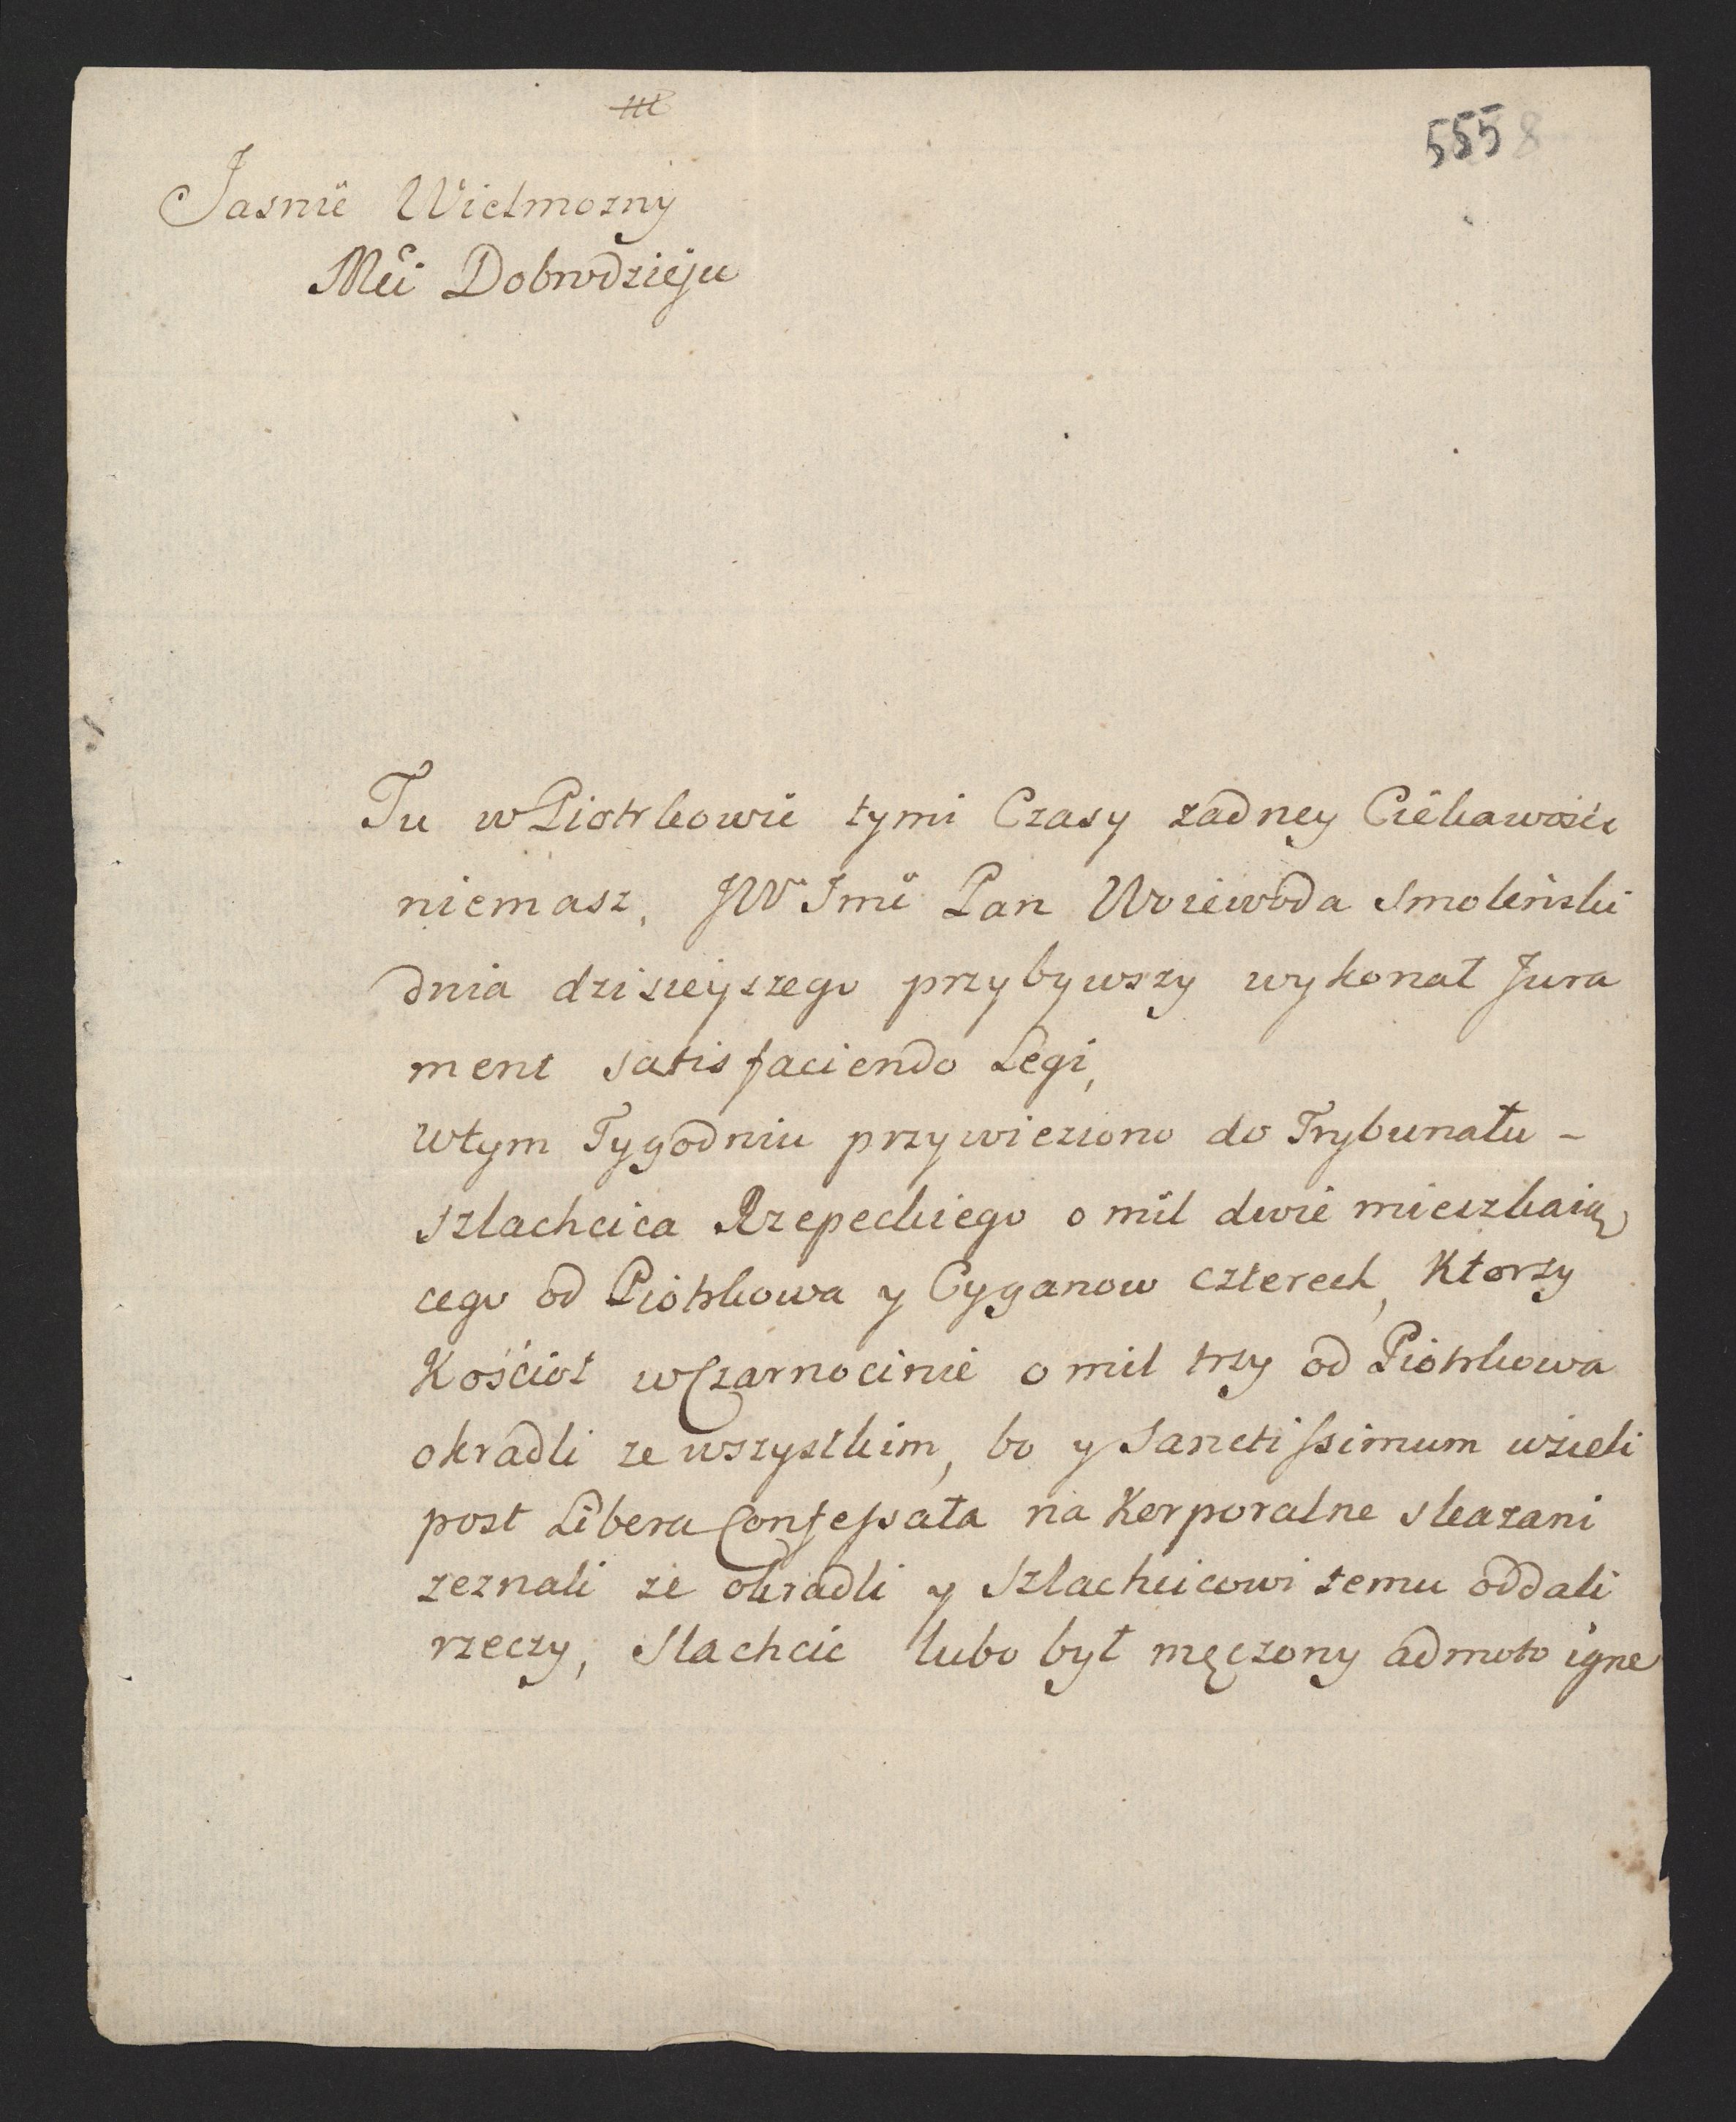 5558
Jasnie Wielmozny
Mci Dobrodzieju
Tu w Piotrkowie tymi Czasy zadney Ciekawości
niemasz, JW Jmc Pan Woiewoda Smoleński
dnia dzisieyszego przybywszy wykonał Jura
ment satisfaciendo Legi,
wtym Tygodniu przywieziono do Trybunału -
szlachcica Rzepeckiego o mil dwie mieszkaią
cego od Piotrkowa y Cyganow czterech, Ktorzy
Kościoł w Czarnocinie o mil trzy od Piotrkowa
okradli ze wszystkim, bo y Sanctissimum wzieli
post Libera Confessata na Korporalne skazani
zeznali ze okradli y Szlachcicowi temu oddali
rzeczy, Slachcic lubo był męczony admoto igne